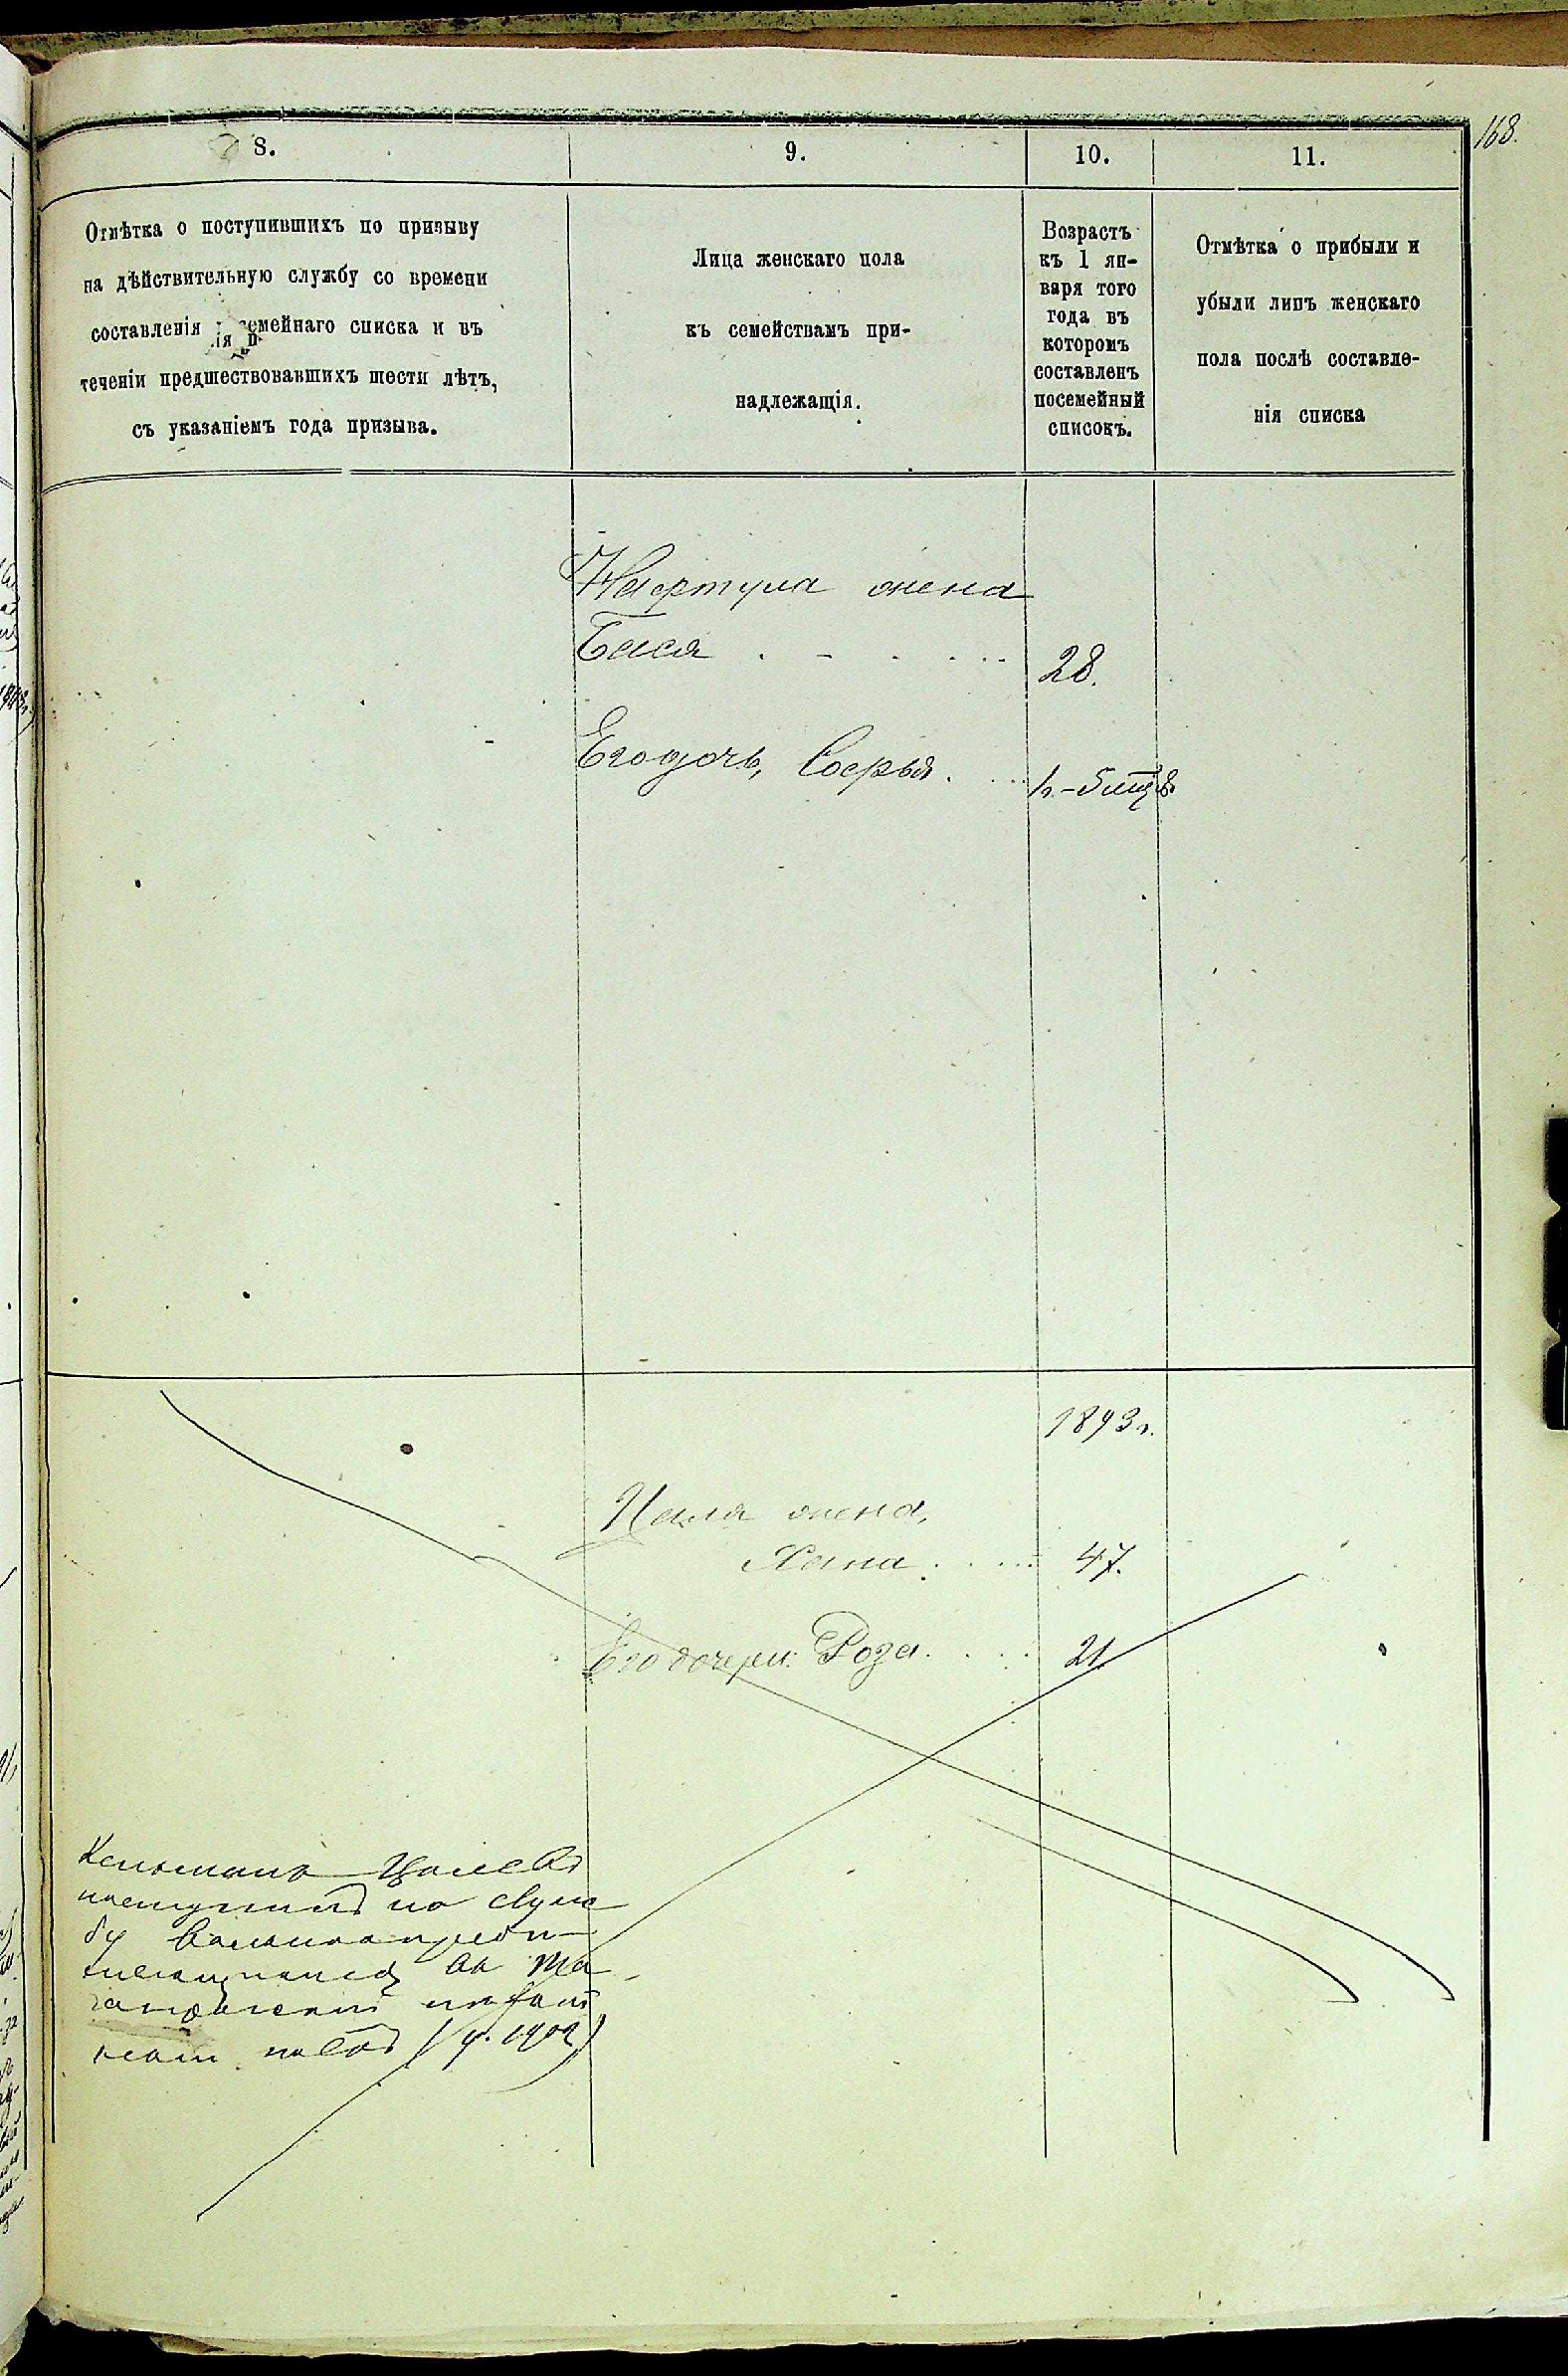 168.
8.
9.
10.
11.
Отмѣтка о поступившихъ по призыву
на дѣйствительную службу со времени
составленія посемейнаго списка и въ
теченіи предшествовавшихъ шести лѣтъ,
съ указаніемъ года призыва.
Лица женскаго пола
къ семействамъ при-
надлежащія.
Возрастъ
къ 1 ян-
варя того
года въ
которомъ
составленъ
посемейный
списокъ.
Отмѣтка о прибыли и
убыли лицъ женскаго
пола послѣ составле-
нія списка
Нафтула жена
Бася
28.
Его дочь, Софья.
1893г.
жена,
Хана
47.
Его дочери: Роза
21
поступилъ на служ
бу
(ч. 1902)